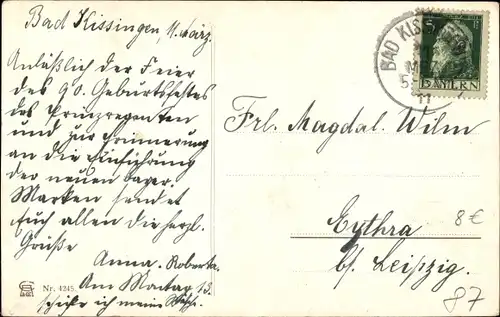 Bad Kissingen, 11. März.
Anläßlich der Feier
des 90. Geburtsfestes
des Prinzregenten
und zur Erinnerung
an die Einführung
der neuen bayer.
Marken sendet
Euch allen die herzl.
Grüße
Anna. Roberta.
Am Montag 13.
schicke ich meine
Nr. 4245.
BAD KISSINGEN
11
BAYERN
Frl. Magdal. Wilm
Eythra
bf. Leipzig.
8 €
87